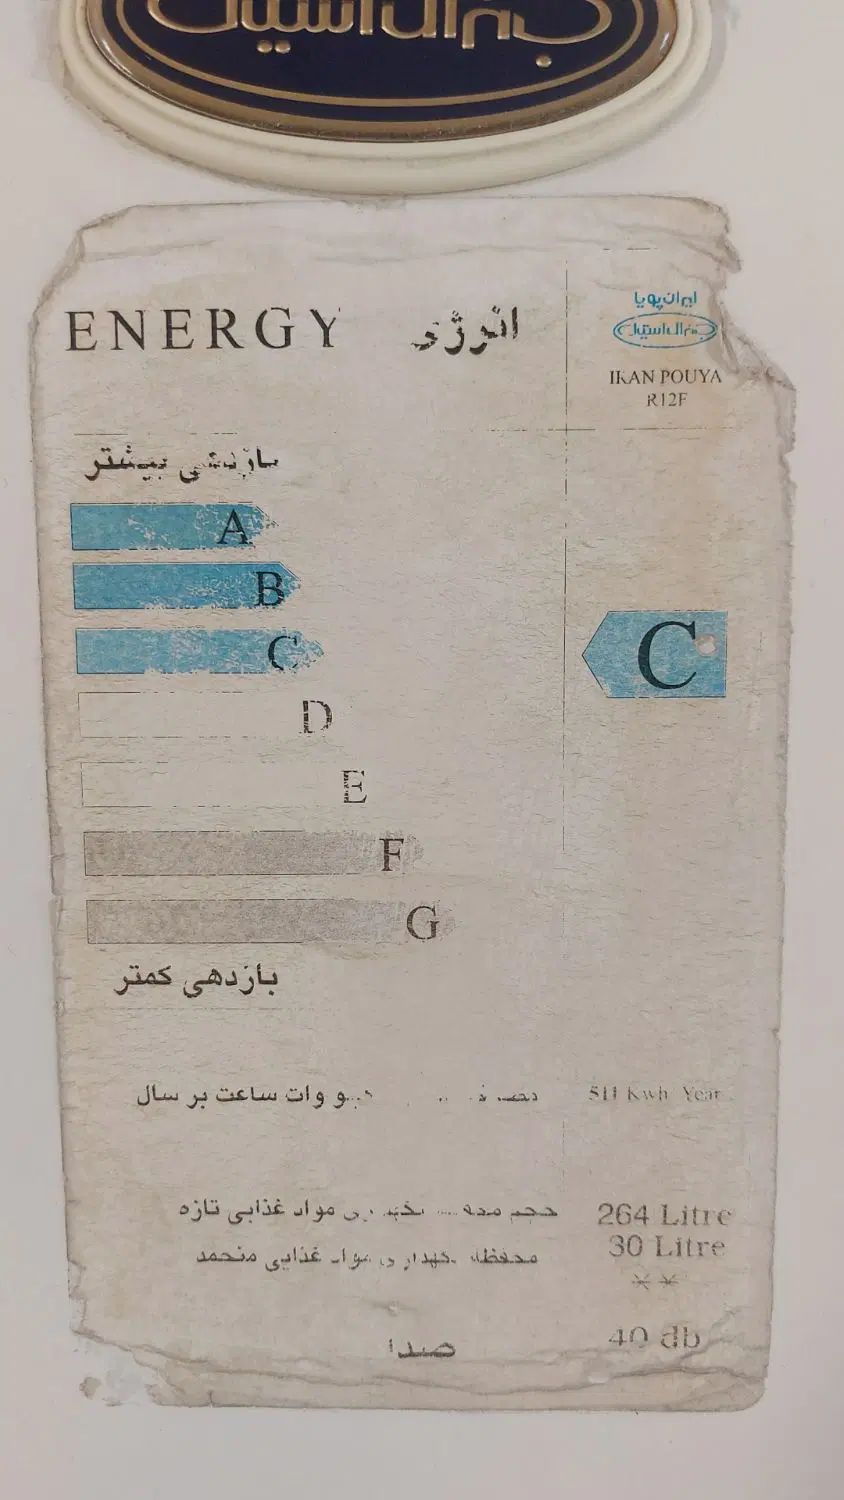 جنرال استیل
ENERGY انرژی
ایران پویا
جنرال استیل
IRAN POUYA
R12F
بازدهی بیشتر
A
B
C
C
D
E
F
G
بازدهی کمتر
وات ساعت بر سال
511 Kwh Year
حجم محفظه نگهداری مواد غذایی تازه 264 Litre
محفظه نگهداری مواد غذایی منجمد 30 Litre
**
صدا 40 db